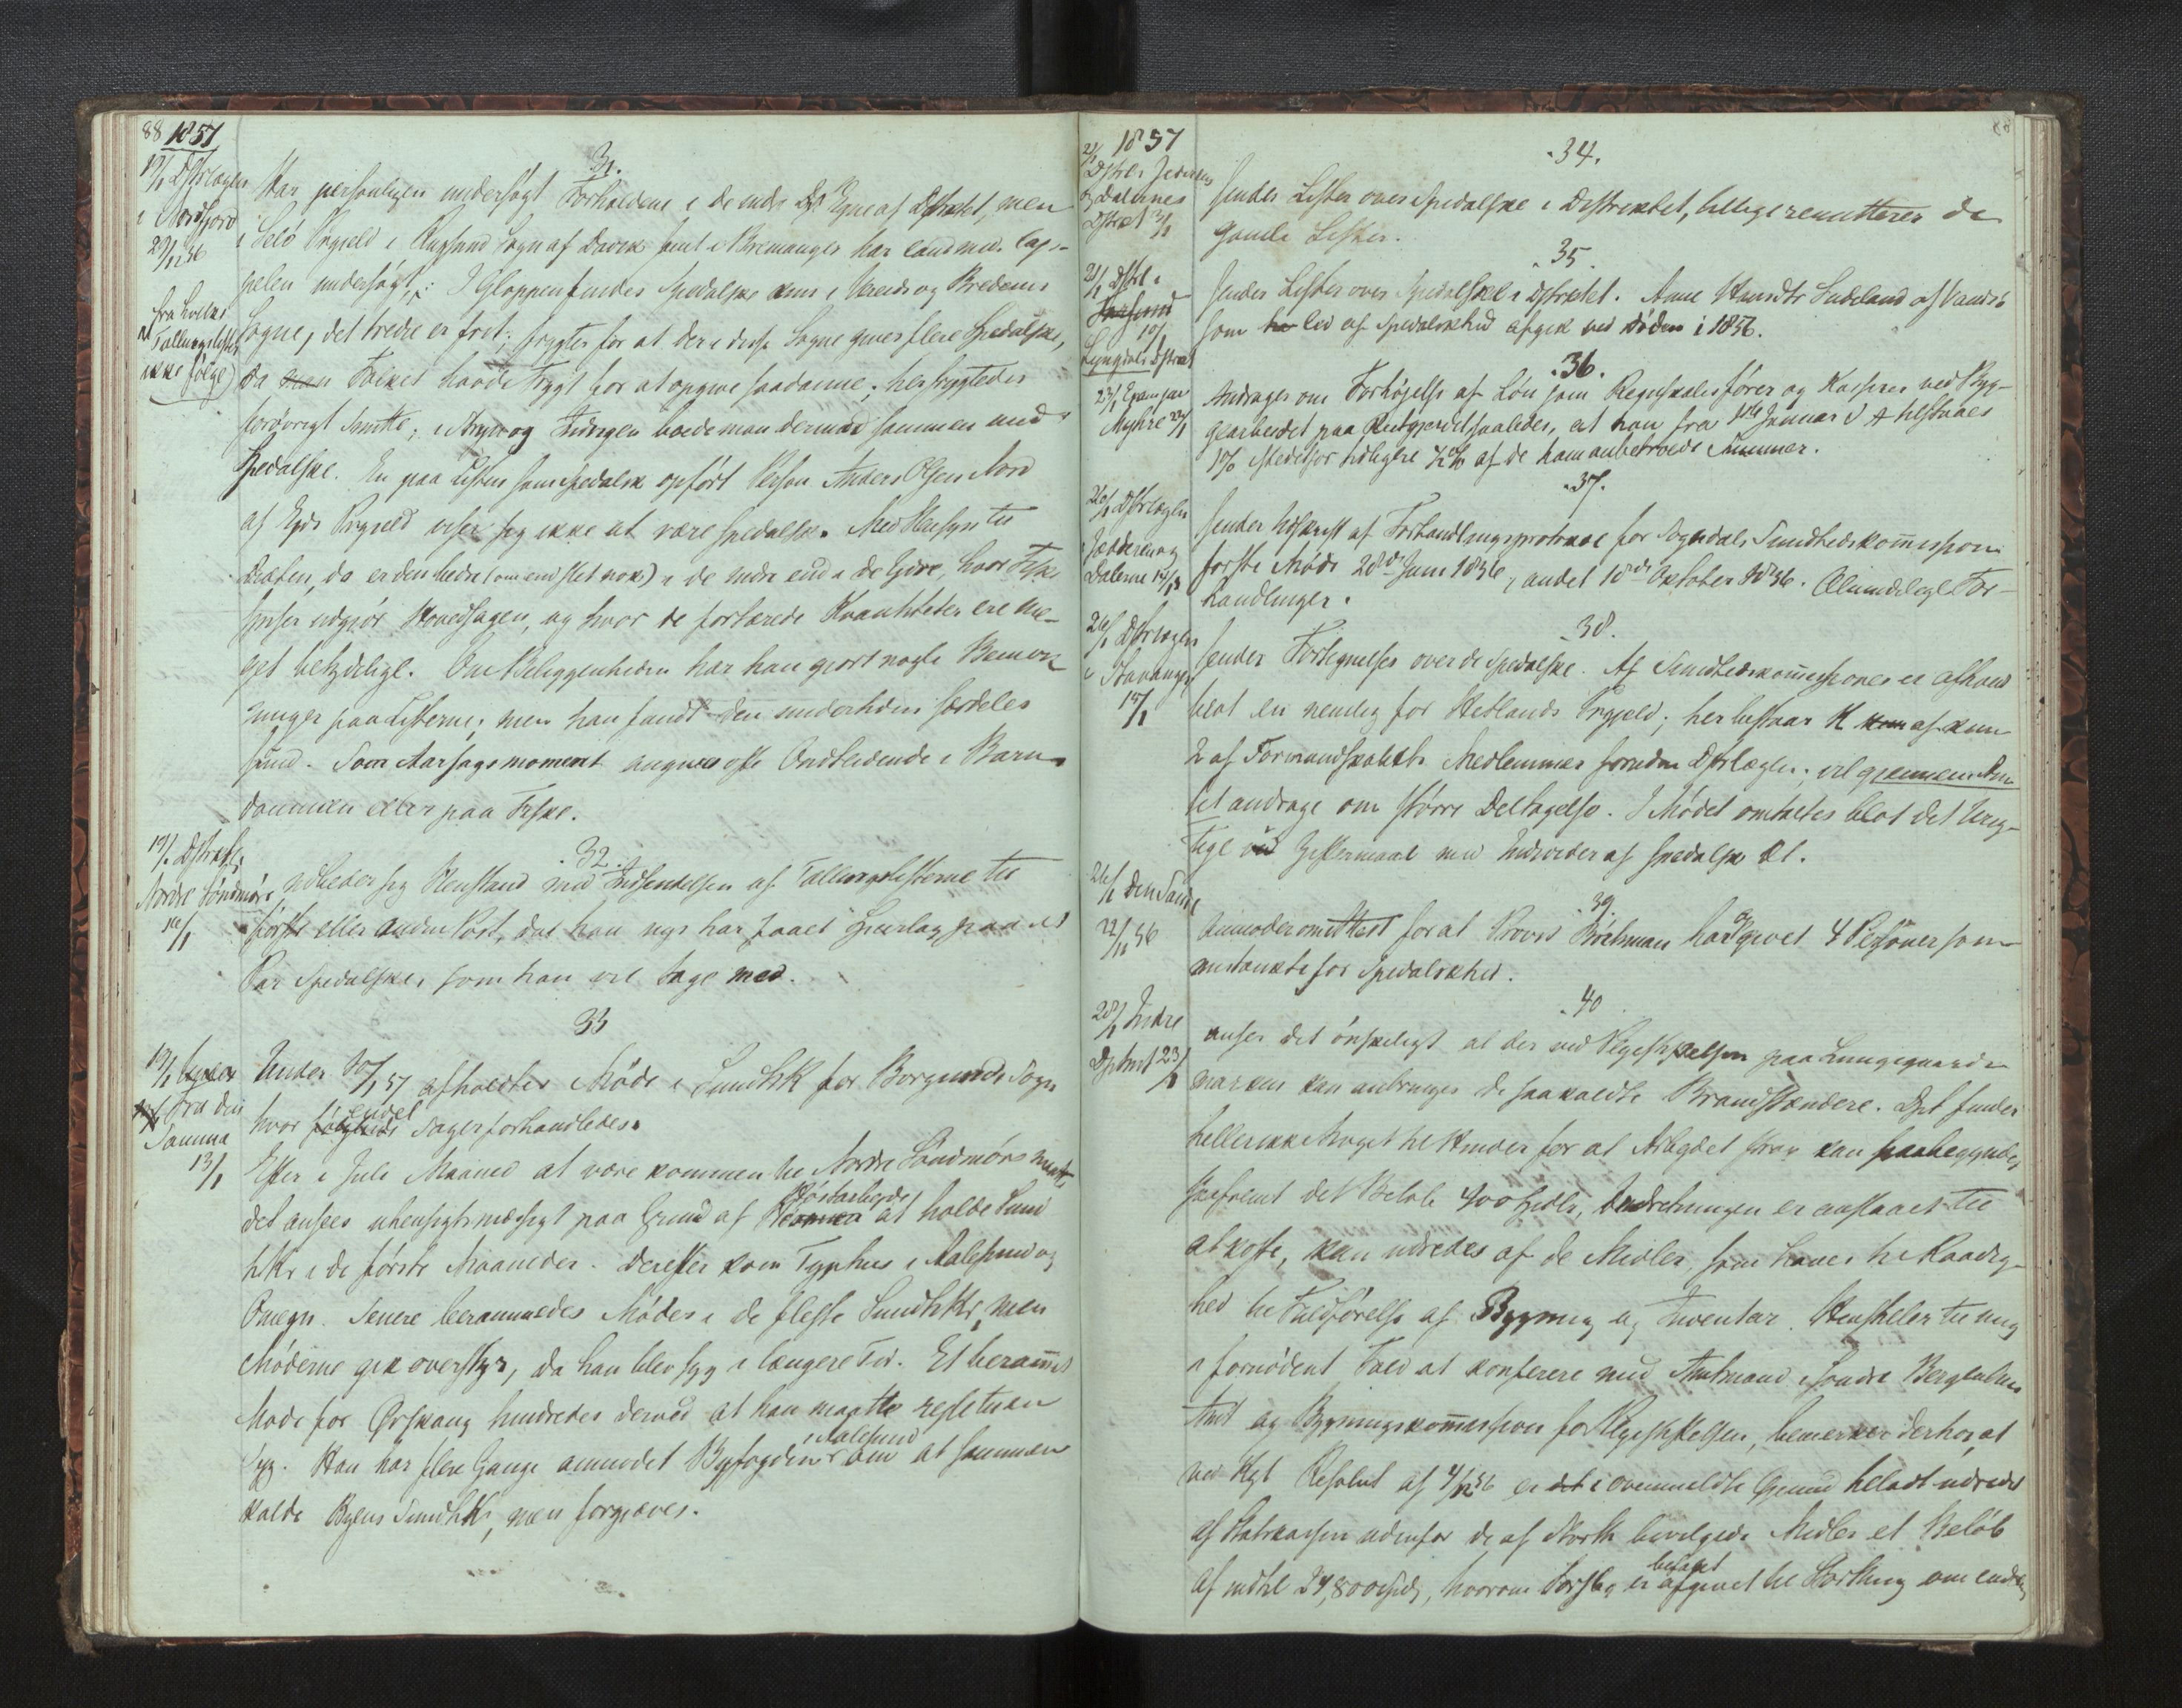 88 1857
19/1 Dstrlægen
i Nordfjord
29/12 56
31.
Har personligen undersøgt Forholdene i de indre Egne af Dstrktet, men
i Selø Prgjeld i Rugsund Sogn af Davik samt i Bremanger har Cap-
pelen undersøgt,: I Gloppen findes Spedalske kun i Vereids og Bredems
Sogne, det tredie er frit; frygter for at der i disse Sogne gives flere Spedalske,
Tællingslister
ikke følge)
da Folket havde Frygt for at opgive saadanne; her frygtedes
forøvrigt Smitte; i boede man dermed sammen med
Spedalske. En paa Listen som spedalsk opført Person Anders Olsen Nord
af Eids Prgjeld viser sig ikke at være spedalsk. Med Hensyn til
Diæten, da er den bedre (om end slet nok) i de indre end i de Ydre, hvor Fiske
spiser udgjør Hovedsagen, og hvor de fortærede Kvantiteter ere me-
get betydelige. Om Beliggenheden har han gjort nogle Bemærk
ninger paa Listerne; men han fandt den undertiden særdeles
sund. Som Aarsagsmoment angives ofte Ondtlidende i Barn-
dommen eller paa Fiske.
19/1 Dstrktsl.
Nordre Søndmøre
14/1
32.
udbeder sig Henstand med Indsendelsen af Tællingslisterne til
første eller anden Post, da han nys har faaet Spurlag paa et
Par Spedalske, som han vil tage med.
33
19/1
Fra den
Samma
13/1
Under 10/1 57 afholdtes Møde i SundhK for Borgunds Sogn
hvor endel Sager forhandledes.
Efter i Juli Maaned at være kommen til Nordre Søndmøre
det ansees uhensigtsmæssigt paa Grund af Høstarbejde at holde Sund
hKr i de første Maaneder. Derefter kom Typhus i Aalesund og
Omegn. Senere berammedes Møder i de fleste SundhKr, men
Møderne gik overstyr, da han blev syg i længere Tid. Et beram̅et
Møde for Ørskoug hindredes derved at han maatte rejse til en
Syg. Han har flere Gange anmodet Byfogden i Aalesund om at sammen
kalde Byens SundhK, men forgjæves.
1857
21/1
Dstkl. Jederen
og Dalernes
Dstrct 13/1
34.
Sender Lister over Spedalske i Distriktet, tillige remitterer de
gamle Lister.
21/1 Dstkl. i
10/1
Lyngdals Dstrict
35
Sender Lister over Spedalske i Dstrictet. Anne Hansdtr Ludeland af Vandsø
som led af Spedalskhed afgik ved Døden i 1856.
23/1
Myhre 22/1
36.
Andrager om Forhøjelse af Løn som Regnskabsfører og Kasserer ved Byg-
gearbeidet paa Reitgjerdet saaledes, at han fra 1ste Januar d A tilstaaes
1% istedetfor tidligere ½% af de ham anbetroede Summer.
26/1 Dstrlægen
Jædderen og
Dalerne 14/1
37.
Sender Udskrift af Forhandlingsprotokol for Sogndals Sundhedskommission
første Møde 20de Juni 1856, andet 10de Oktober 1856. Almindelige For-
handlinger.
26/1 Dstrlægen
i Stavanger
15/1
38.
Sender Fortegnelse over de Spedalske. Af Sundhedskom̅issioner er afholdt
blot en nemlig for Hetlands Prgjeld; her bestaar K af kun
2 af Formandskabets Medlemmer foruden Dstrlægen; vil gjennem Am
tet andrage om større Deltagelse. I Mødet omtaltes blot det Urig-
tige ved Giftermaal med Individer af spedalsk Æt.
26/1 den Samme
22/12 56
39.
Anmoder om Attest for at Provst har opgivet 4 Personer som
mistænkte for Spedalskhed.
28/1 Indre
Dptmt 23/1
40
anser det ønskeligt at der ved Plejestiftelsen paa Lungegaards-
marken kan anbringes de saakaldte Brandstændere. Dpt finder
heller ikke Noget til Hinder for at Arbejdet strax kan paabegyndes,
saafremt det Beløb 400 Spdlr, Indretningen er anslaaet til
at koste, kan udredes af de Midler, som haves til Raadig-
hed til Fuldførelse af Bygning og Inventar. Henstiller til mig
i fornødent Fald at konferere med Amtmand i Søndre Bergenhus
Amt og Bygningskom̅ission for Plejestiftelsen, bemærker derhos, at
ved Kgl Resolut af 4/12 56 er i ovenmeldte Grund tilladt udredet
af Statskassen udenfor de af Storth bevilgede Midler et Beløb
af indtil 24,800 Spd, hvorom Forslag er befalet afgivet til Storthing om endelig